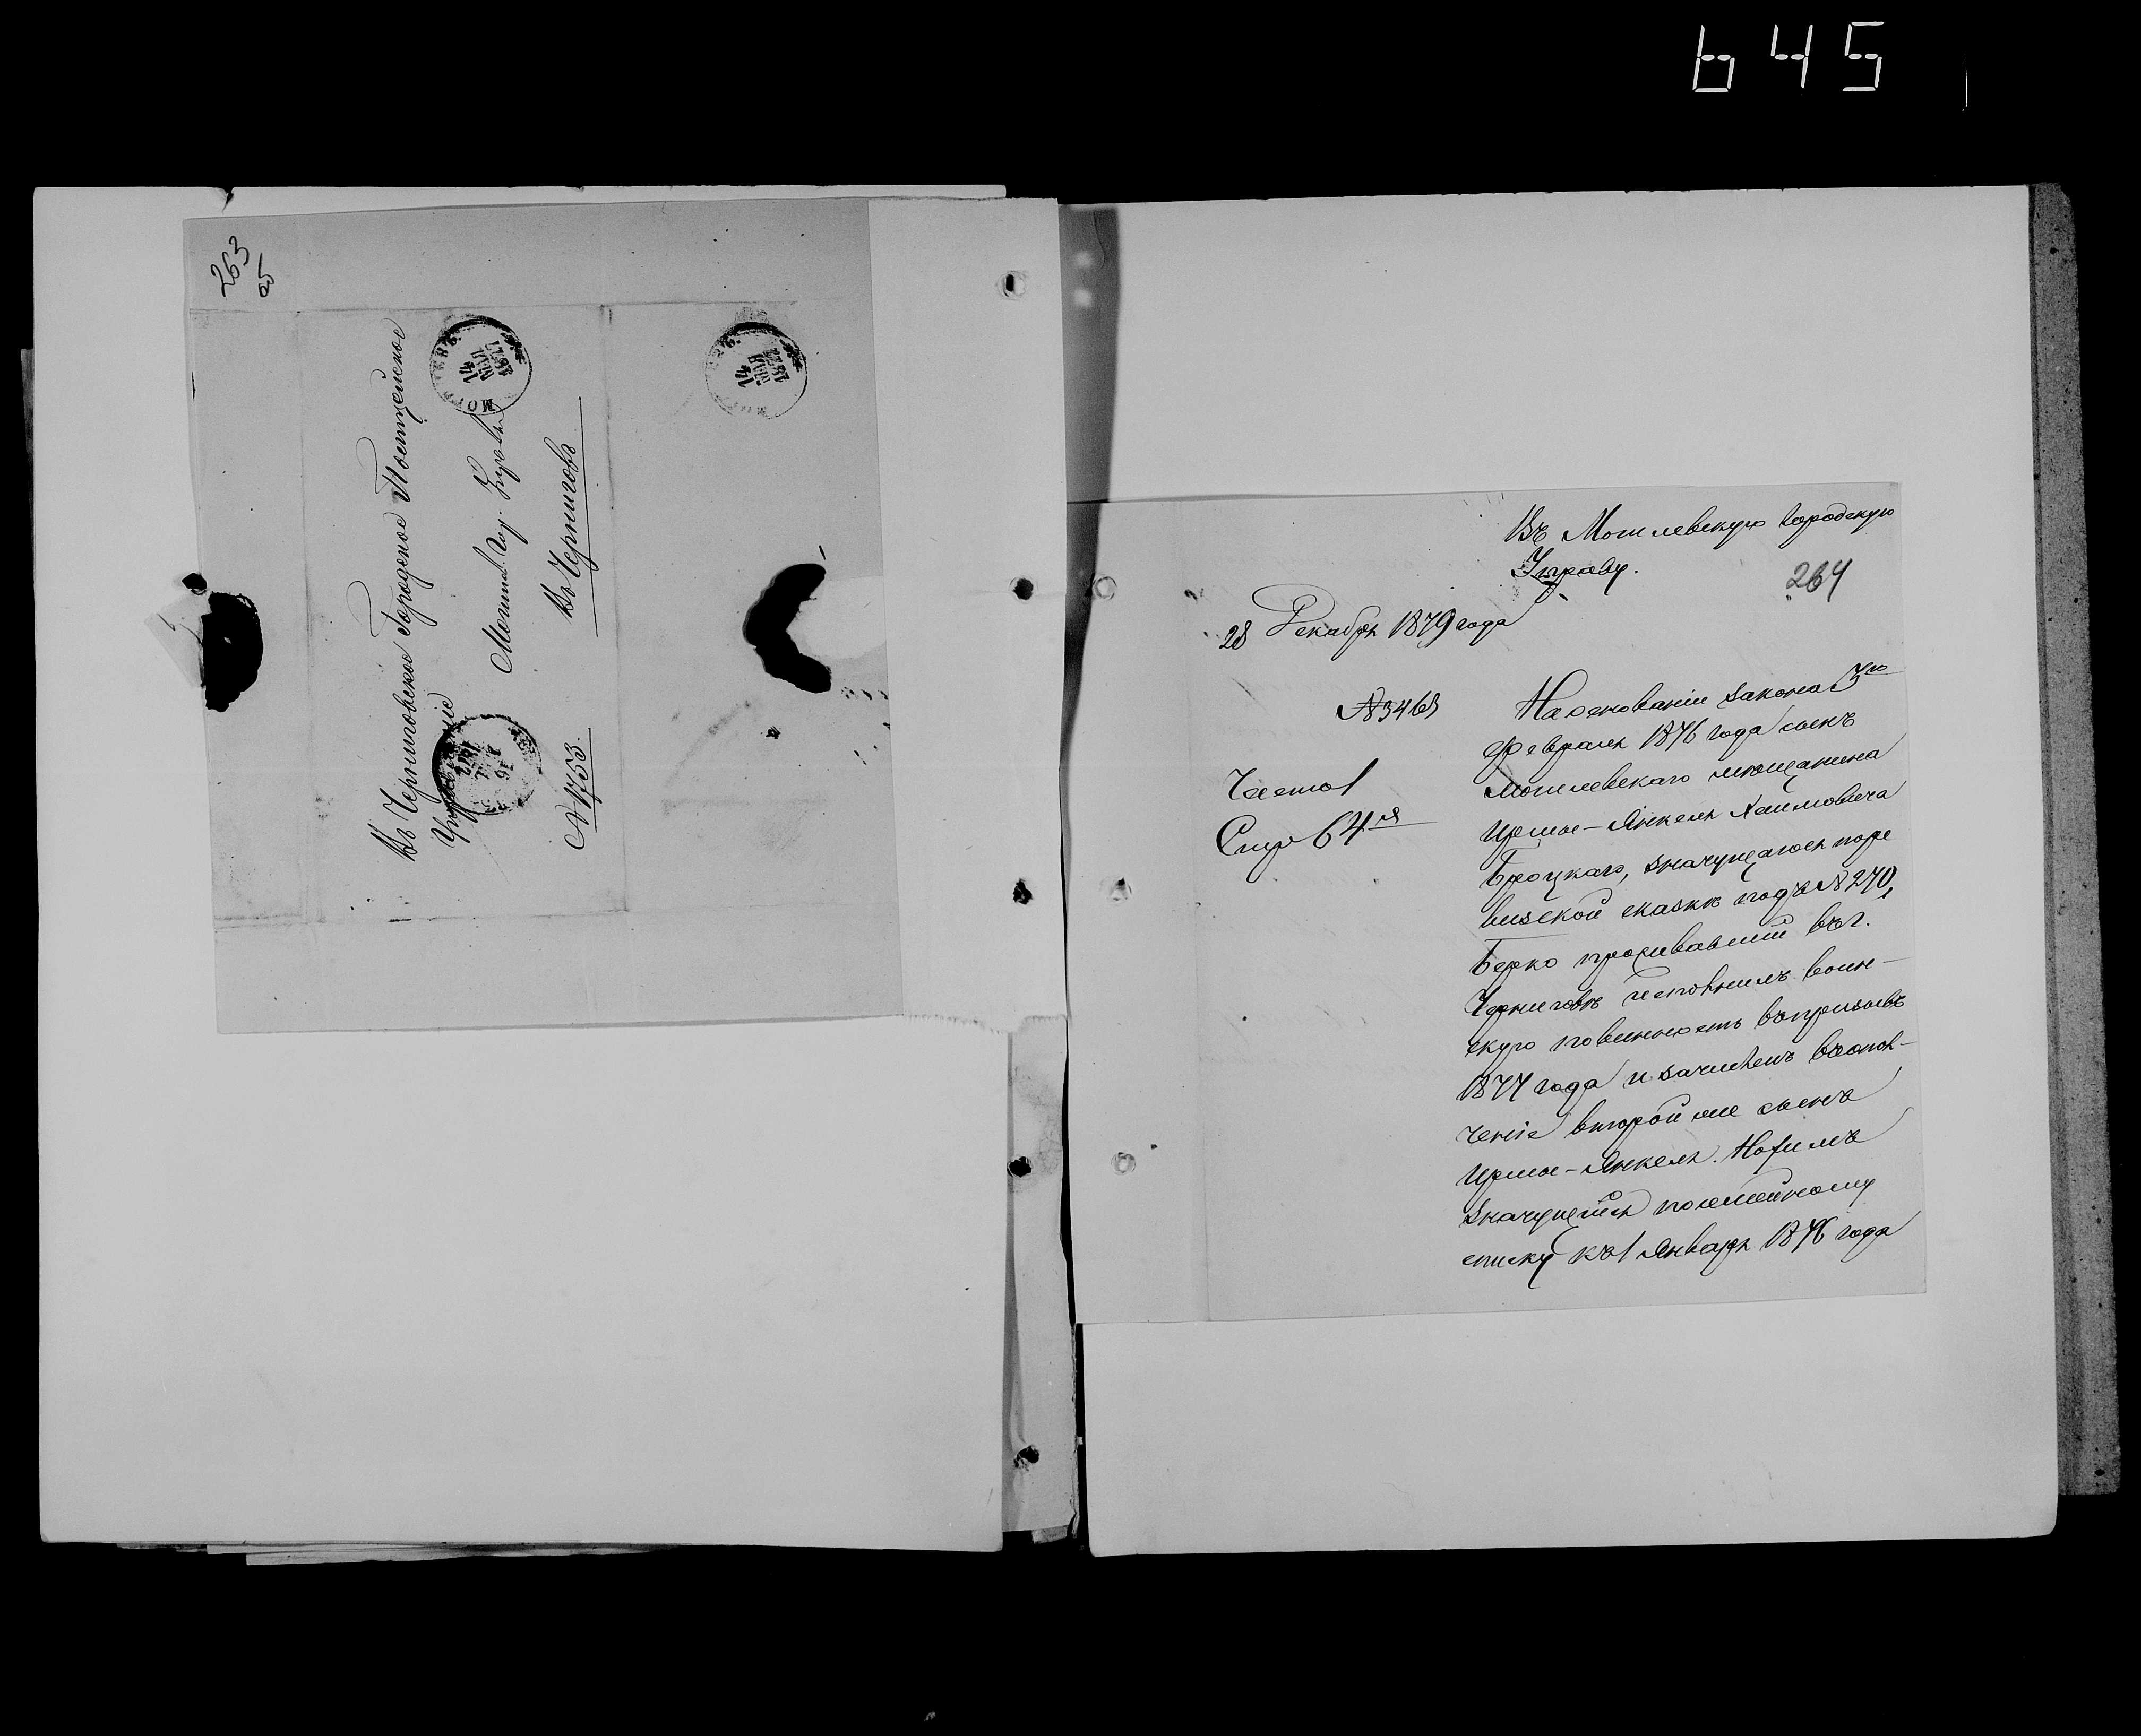 645
263
об
Въ Черниговское Городское Полицейское
Управленіе
Могилев. Гор. Управы
Въ Черниговъ
№ 1753.
МОГИЛЕВЪ
14
ЯНВ
14
ЯНВ
Въ Могилевскую городскую
Управу.
264
28 Декабря 1879 года
№ 3468
Часто 1
Стр 64я
На основаніи закона 3го
Февраля 1876 года сынъ
могилевскаго мещанина
Ирша-Янкеля Хаимовича
Броцкаго, значущагося поре
визской сказкѣ подъ № 270,
Берко проживавшій въ г.
Черниговѣ исполнилъ воин-
скую повинность въ призывѣ
1877 года и зачисленъ въ опол-
ченіе второй же сынъ
Ирша-Янкеля. Нохимъ
значущійся посемейному
списку къ 1 Января 1876 года